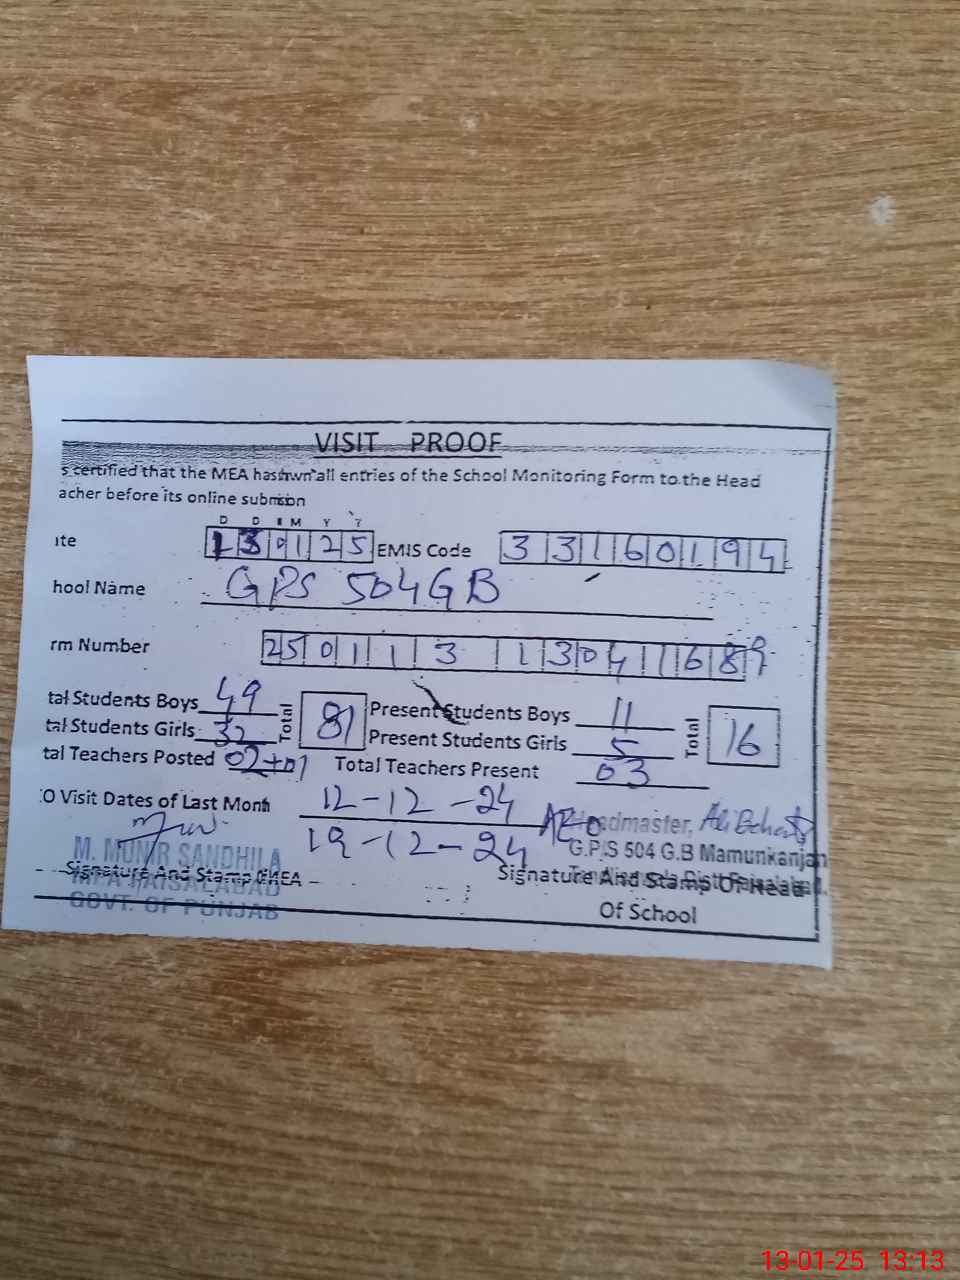 VISIT PROOF
s certified that the MEA has hwn all entries of the School Monitoring Form to the Head
acher before its online submision
D D M M Y Y
ate 130125 EMIS Code 33160194
hool Name GPS 504GB
rm Number 250113130411689
tal Students Boys 49 Total 81 Present Students Boys 11 Total 16
tal Students Girls 32 Present Students Girls 5
tal Teachers Posted 02+01 Total Teachers Present 03
:O Visit Dates of Last Month 12-12-24
19-12-24
AEO Headmaster,
M. MUNIR SANDHILA G.P.S 504 G.B Mamunkanjan
Signature And Stamp Of MEA Signature And Stamp Of Head
MEA FAISALABAD
GOVT. OF PUNJAB Of School
13-01-25 13:13